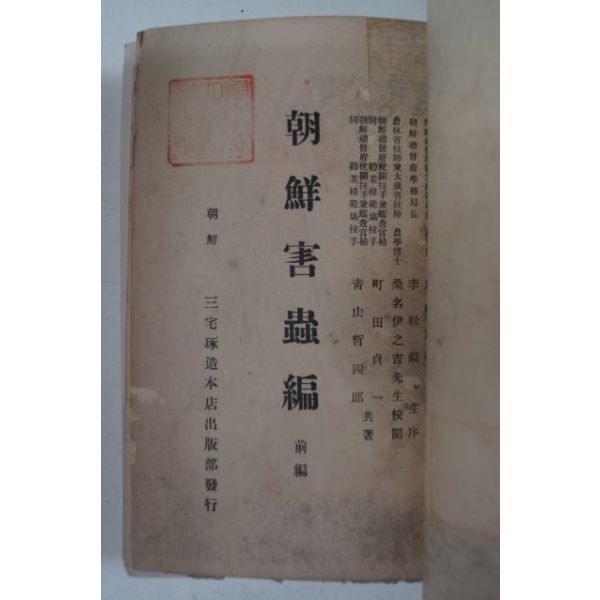 朝鮮總督府學務局長 李軫鎬先生序
農林省技師兼大藏省技師 農學博士 桑名伊之吉先生校閱
朝鮮總督府稅關技手兼鑑査官補
同 勸業模範場技手 町田貞一
朝鮮總督府稅關技手兼鑑査官補
同 勸業模範場技手 靑山哲四郎 共著
朝鮮害蟲編 前編
朝鮮 三宅琢造本店出版部發行